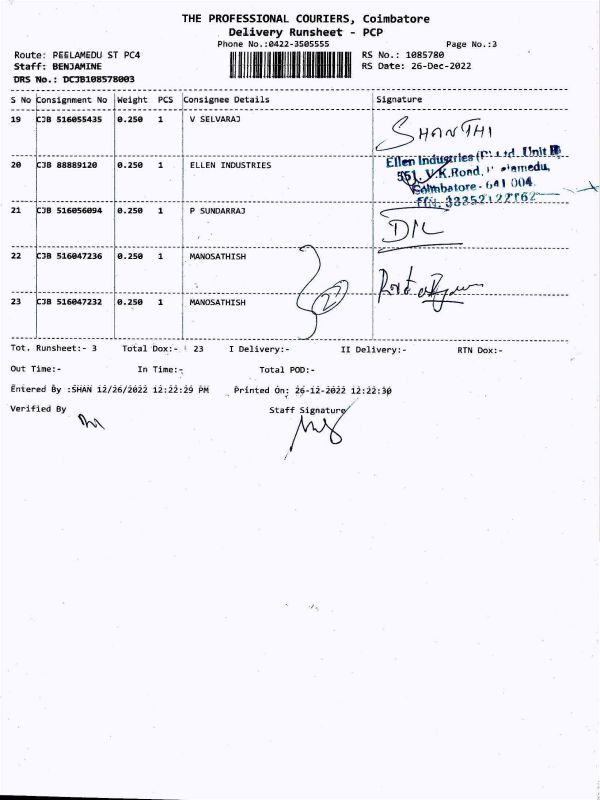 THE PROFESSIONAL COURIERS, Coimbatore
Delivery Runsheet - PCP
Phone No.:0422-3505555
Page No.:3
Route: PEELAMEDU ST PC4
RS No.: 1085780
Staff: BENJAMINE
RS Date: 26-Dec-2022
DRS No.: DCJB108578003
S No Consignment No Weight PCS Consignee Details Signature
19 CJB 516055435 0.250 1 V SELVARAJ
SHANTHI
20 CJB 88889120 0.250 1 ELLEN INDUSTRIES
Ellen Industries Unit
551, V.K.Road,
Coimbatore - 641 004.
21 CJB 516056094 0.250 1 P SUNDARRAJ
22 CJB 516047236 0.250 1 MANOSATHISH
23 CJB 516047232 0.250 1 MANOSATHISH
Tot. Runsheet:- 3 Total Dox:- 23 I Delivery:- II Delivery:- RTN Dox:-
Out Time:- In Time:- Total POD:-
Entered By :SHAN 12/26/2022 12:22:29 PM Printed On: 26-12-2022 12:22:30
Verified By Staff Signature